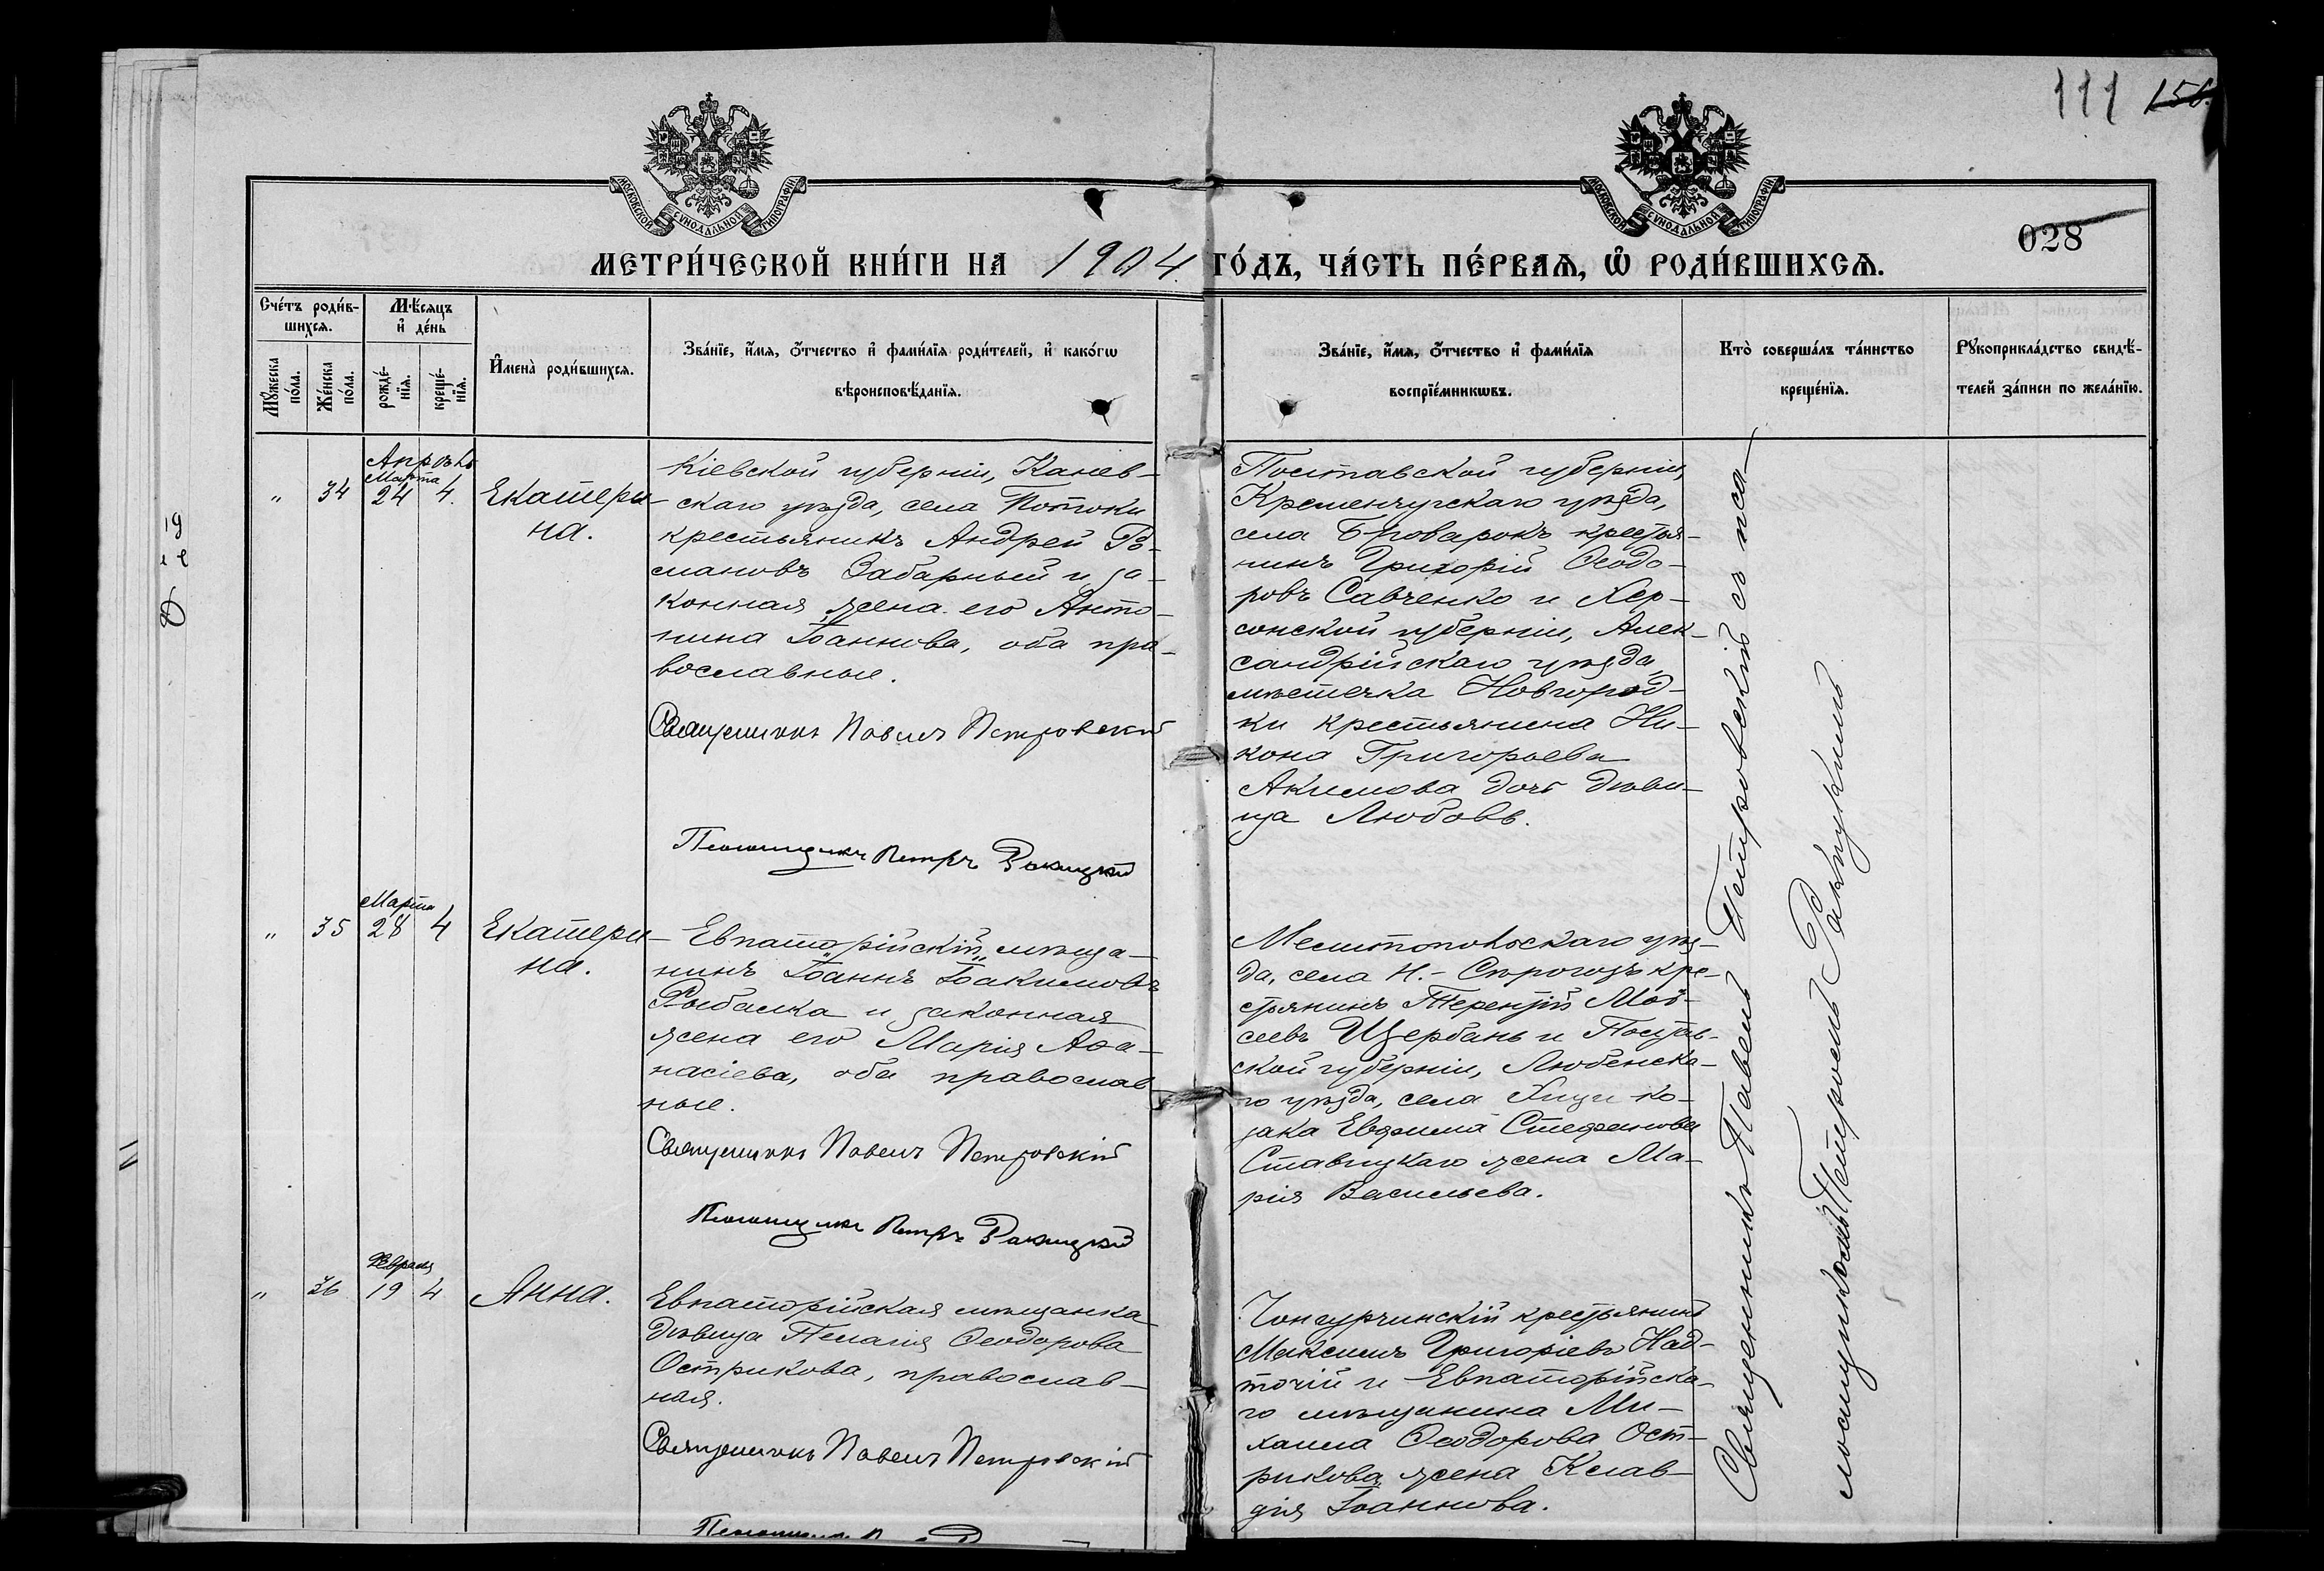 111 156.
МОСКОВСКОЙ СѴНОДАЛЬНОЙ ТИПОГРАФІИ
МОСКОВСКОЙ СѴНОДАЛЬНОЙ ТИПОГРАФІИ
028
МЕТРИ́ЧЕСКОЙ КНИ́ГИ НА 1904. ГО́ДЪ, ЧА́СТЬ ПЕ́РВАѦ, Ѡ РОДИ́ВШИХСѦ.
Сче́тъ роди́в-
шихсѧ.
Мꙋ́жеска по́ла.
Же́нска по́ла.
Мѣ́сѧцъ и де́нь
рожде́-
нїѧ.
креще́-
нїѧ.
Имена̀ роди́вшихсѧ.
Зва́нїе, и́мѧ, о́тчество и фами́лїѧ роди́телей, и како́гѡ
вѣроисповѣ́данїѧ.
Зва́нїе, и́мѧ, о́тчество и фами́лїѧ
воспрїе́мникѡвъ.
Кто̀ соверша́лъ та́инство
креще́нїѧ.
Рꙋкоприкла́дство свидѣ́-
телей за́писи по жела́нїю.
" 34
Марта 24 Апрѣль 4.
Екатери-
на.
Кіевской губерніи, Канев-
скаго уѣзда, села Потоки
крестьянинъ Андрей Ро-
мановъ Забарный и за-
конная жена его Анто-
нина Іоаннова, оба пра-
вославные.
Священникъ Павелъ Петровскій
Псаломщикъ Петръ Ракицкій
Полтавской губерніи,
Кременчугскаго уѣзда,
села Броварокъ крестья-
нинъ Григорій Ѳеодо-
ровъ Савченко и Хер-
сонской губерніи, Алек-
сандрійскаго уѣзда,
мѣстечка Новгород-
ки крестьянина Ни-
кона Григорьева
Акимова дочь дѣви-
ца Любовь.
" 35
Марта 28 4
Екатери-
на.
Евпаторійскій мѣща-
нинъ Іоаннъ Іоакимовъ
Рыбалка и законная
жена его Марія Аѳа-
насіева, оба православ-
ные.
Священникъ Павелъ Петровскій
Псаломщикъ Петръ Ракицкій
Мелитопольскаго уѣз-
да, села Н.-Сѣрогозъ кре-
стьянинъ Терентій Мои-
сеевъ Щербань и Полтав-
ской губерніи, Лубенска-
го уѣзда, села Хицы ко-
зака Евѳимія Стефанова
Ставицкаго жена Ма-
рія Васильева.
" 36
Февраля 19 4
Анна.
Евпаторійская мѣщанка
дѣвица Пелагія Ѳеодорова
Острикова, православ-
ная.
Священникъ Павелъ Петровскій
Чонгурчинскій крестьянинъ
Максимъ Григоріевъ Над-
точій и Евпаторійска-
го мѣщанина Ми-
хаила Ѳеодорова Ост-
рикова жена Клав-
дія Іоаннова.
Священникъ Павелъ Петровскій съ пса-
ломщикомъ Петромъ Ракицкимъ